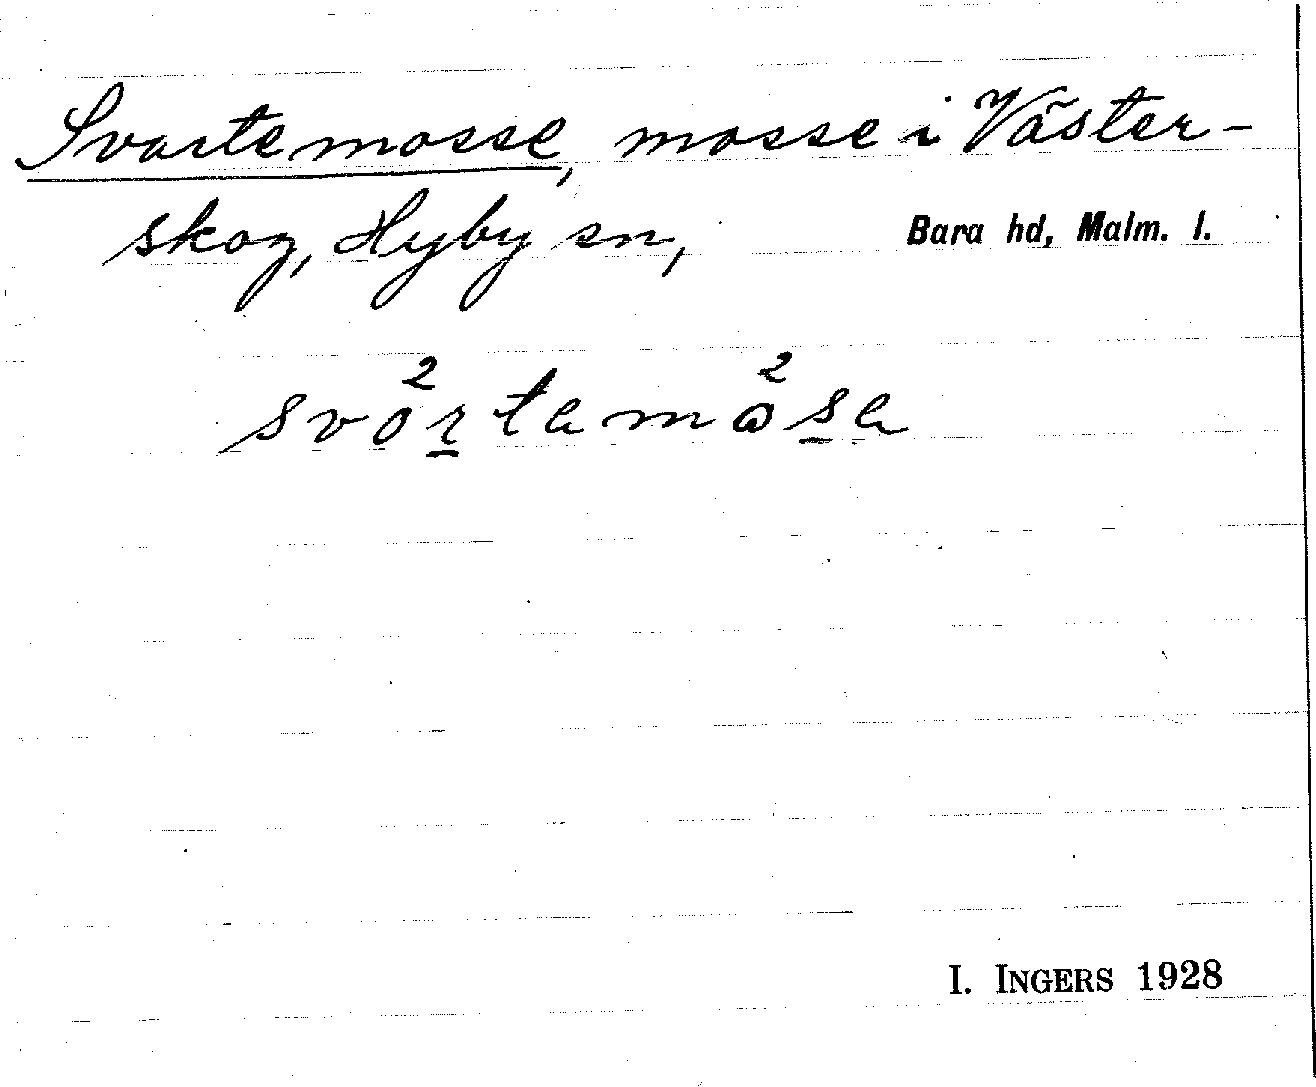 Svartemosse, mosse i Väster-
skog, Hyby sn, Bara hd, Malm. l.
svo²rtamа²sa
I. INGERS 1928